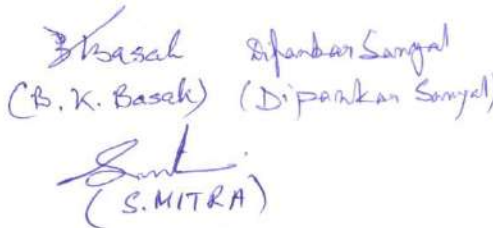 BKBasak Dipankar Sanyal
(B. K. Basak) (Dipankar Sanyal)
(S. MITRA)